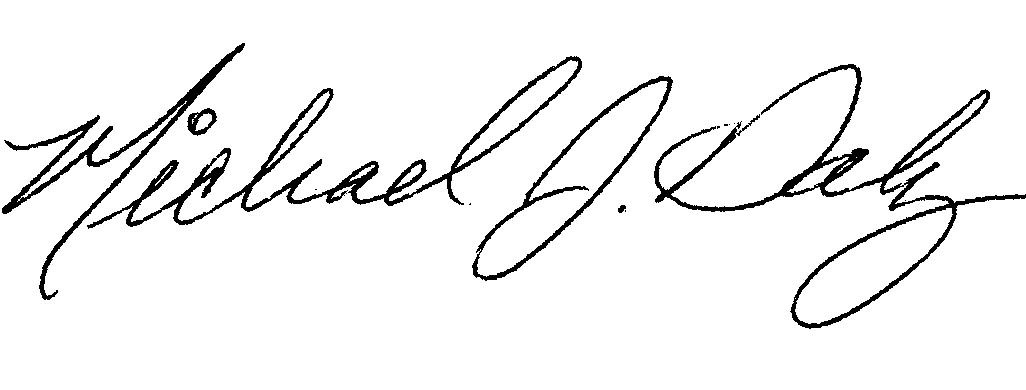 Michael J. Daly